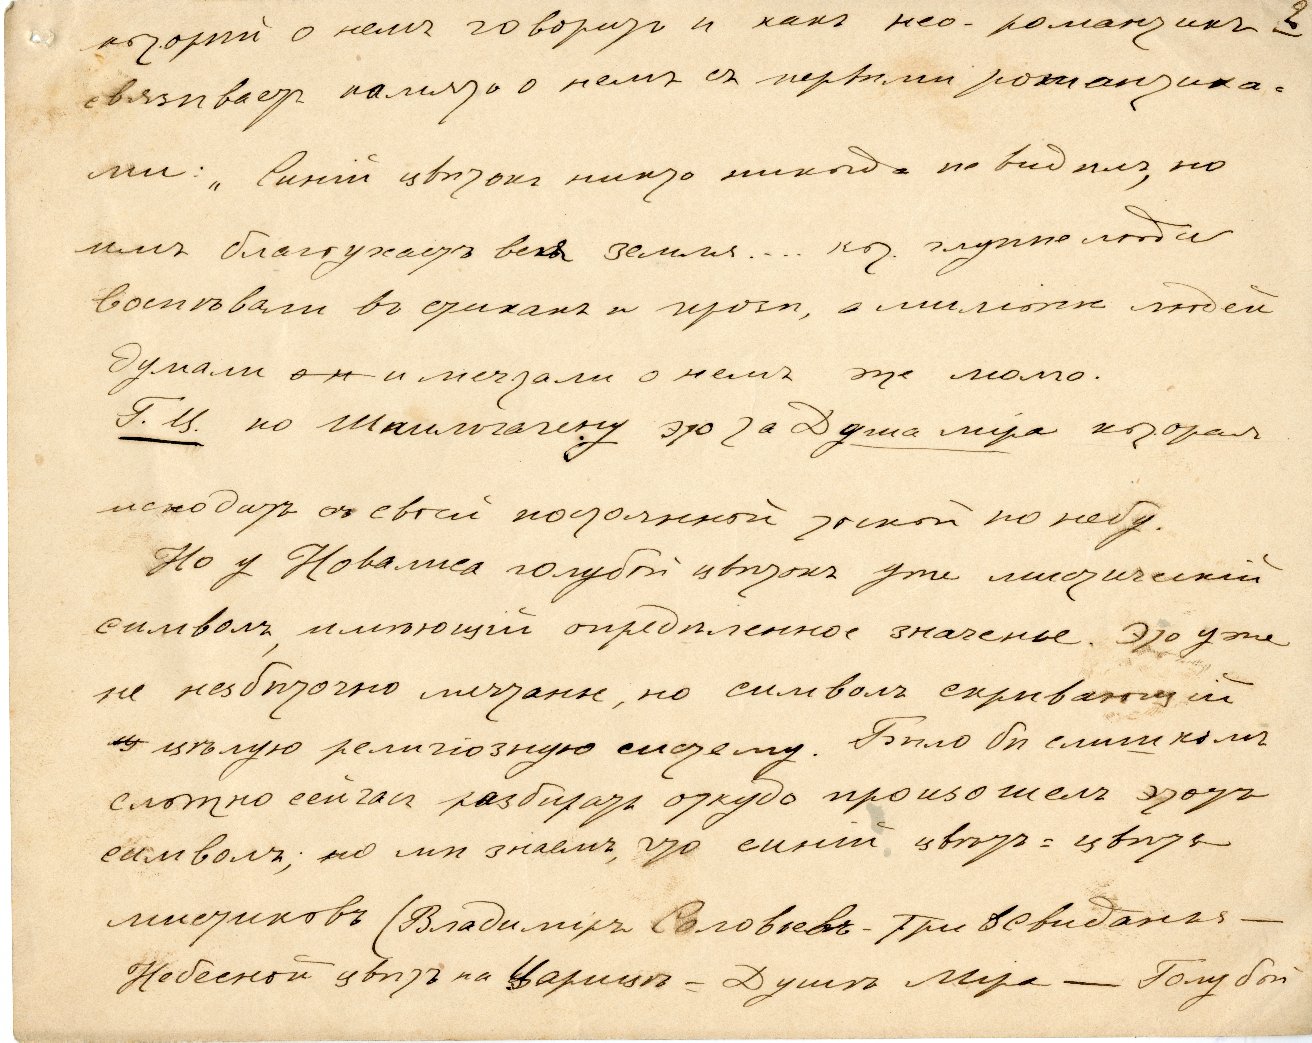 который о немъ говоритъ и какъ нео-романтикъ 2
связываетъ память о немъ съ первыми романтика=
ми: „Синій цвѣтокъ никто никогда не видилъ, но
имъ благоухаетъ вся земля.... кот. глупые люди
воспѣвали въ стихахъ и прозѣ, а милыя людей
думали он и мечтали о немъ же молча.
Г. Ц. по это та Душа міра которая
исходитъ съ своей постоянной тоской по небу.
Но у Новалиса голубой цвѣтокъ уже мистическій
символъ, имѣющій опредѣленное значенье. Это уже
не незбыточно мечтанье, но символъ скрывающій
ц цѣлую религіозную систему. Было бы слишкомъ
сложно сейчасъ разбирать откуда произошелъ этотъ
символъ; но мы знаемъ, что синій цвѣтъ = цвѣтъ
мистиковъ (Владиміръ Соловьевъ - Три Свиданья —
Небесной цвѣтъ на Царицѣ = Душѣ Міра — Голубой